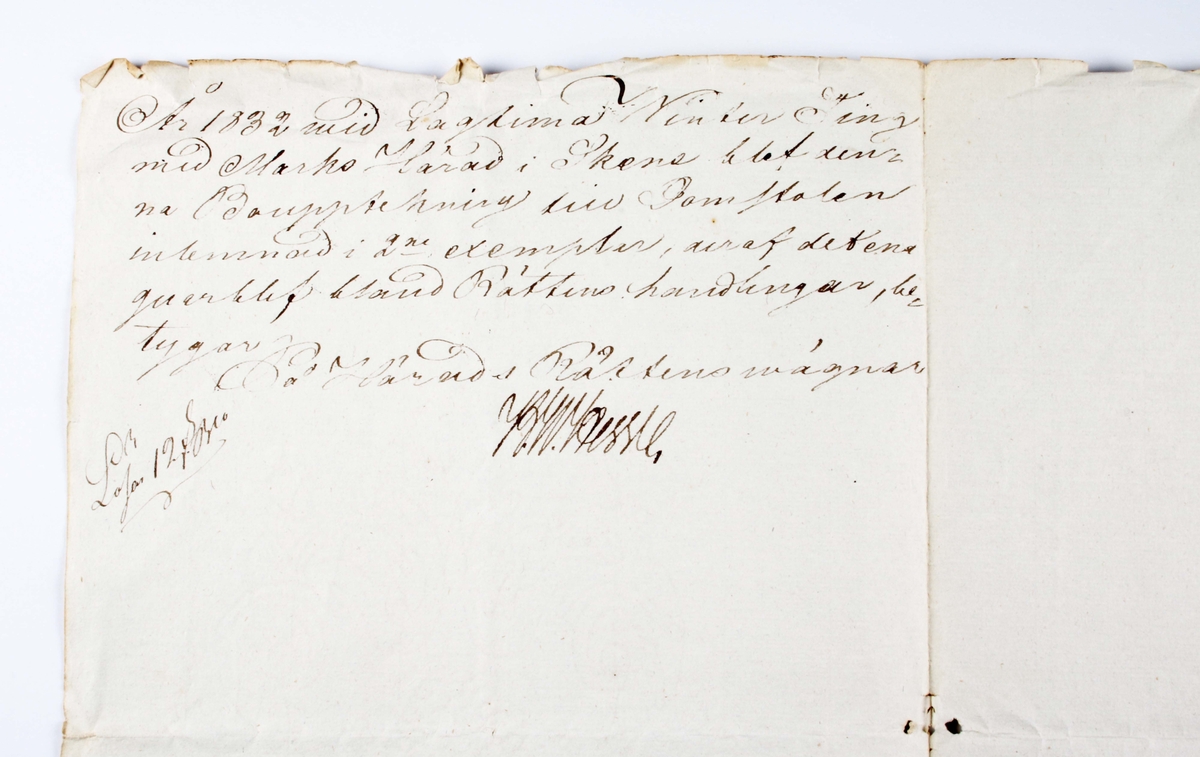 År 1832 wid Lagtima Winter Ting
med Marks Härad i Skene blef den-
na Bouppteckning till Domstolen
inlemnad i 2ne exemplar, deraf det ena
quarblef bland Rättens handlingar, be-
tygar
På Härads Rättens wägnar
Lösen 12